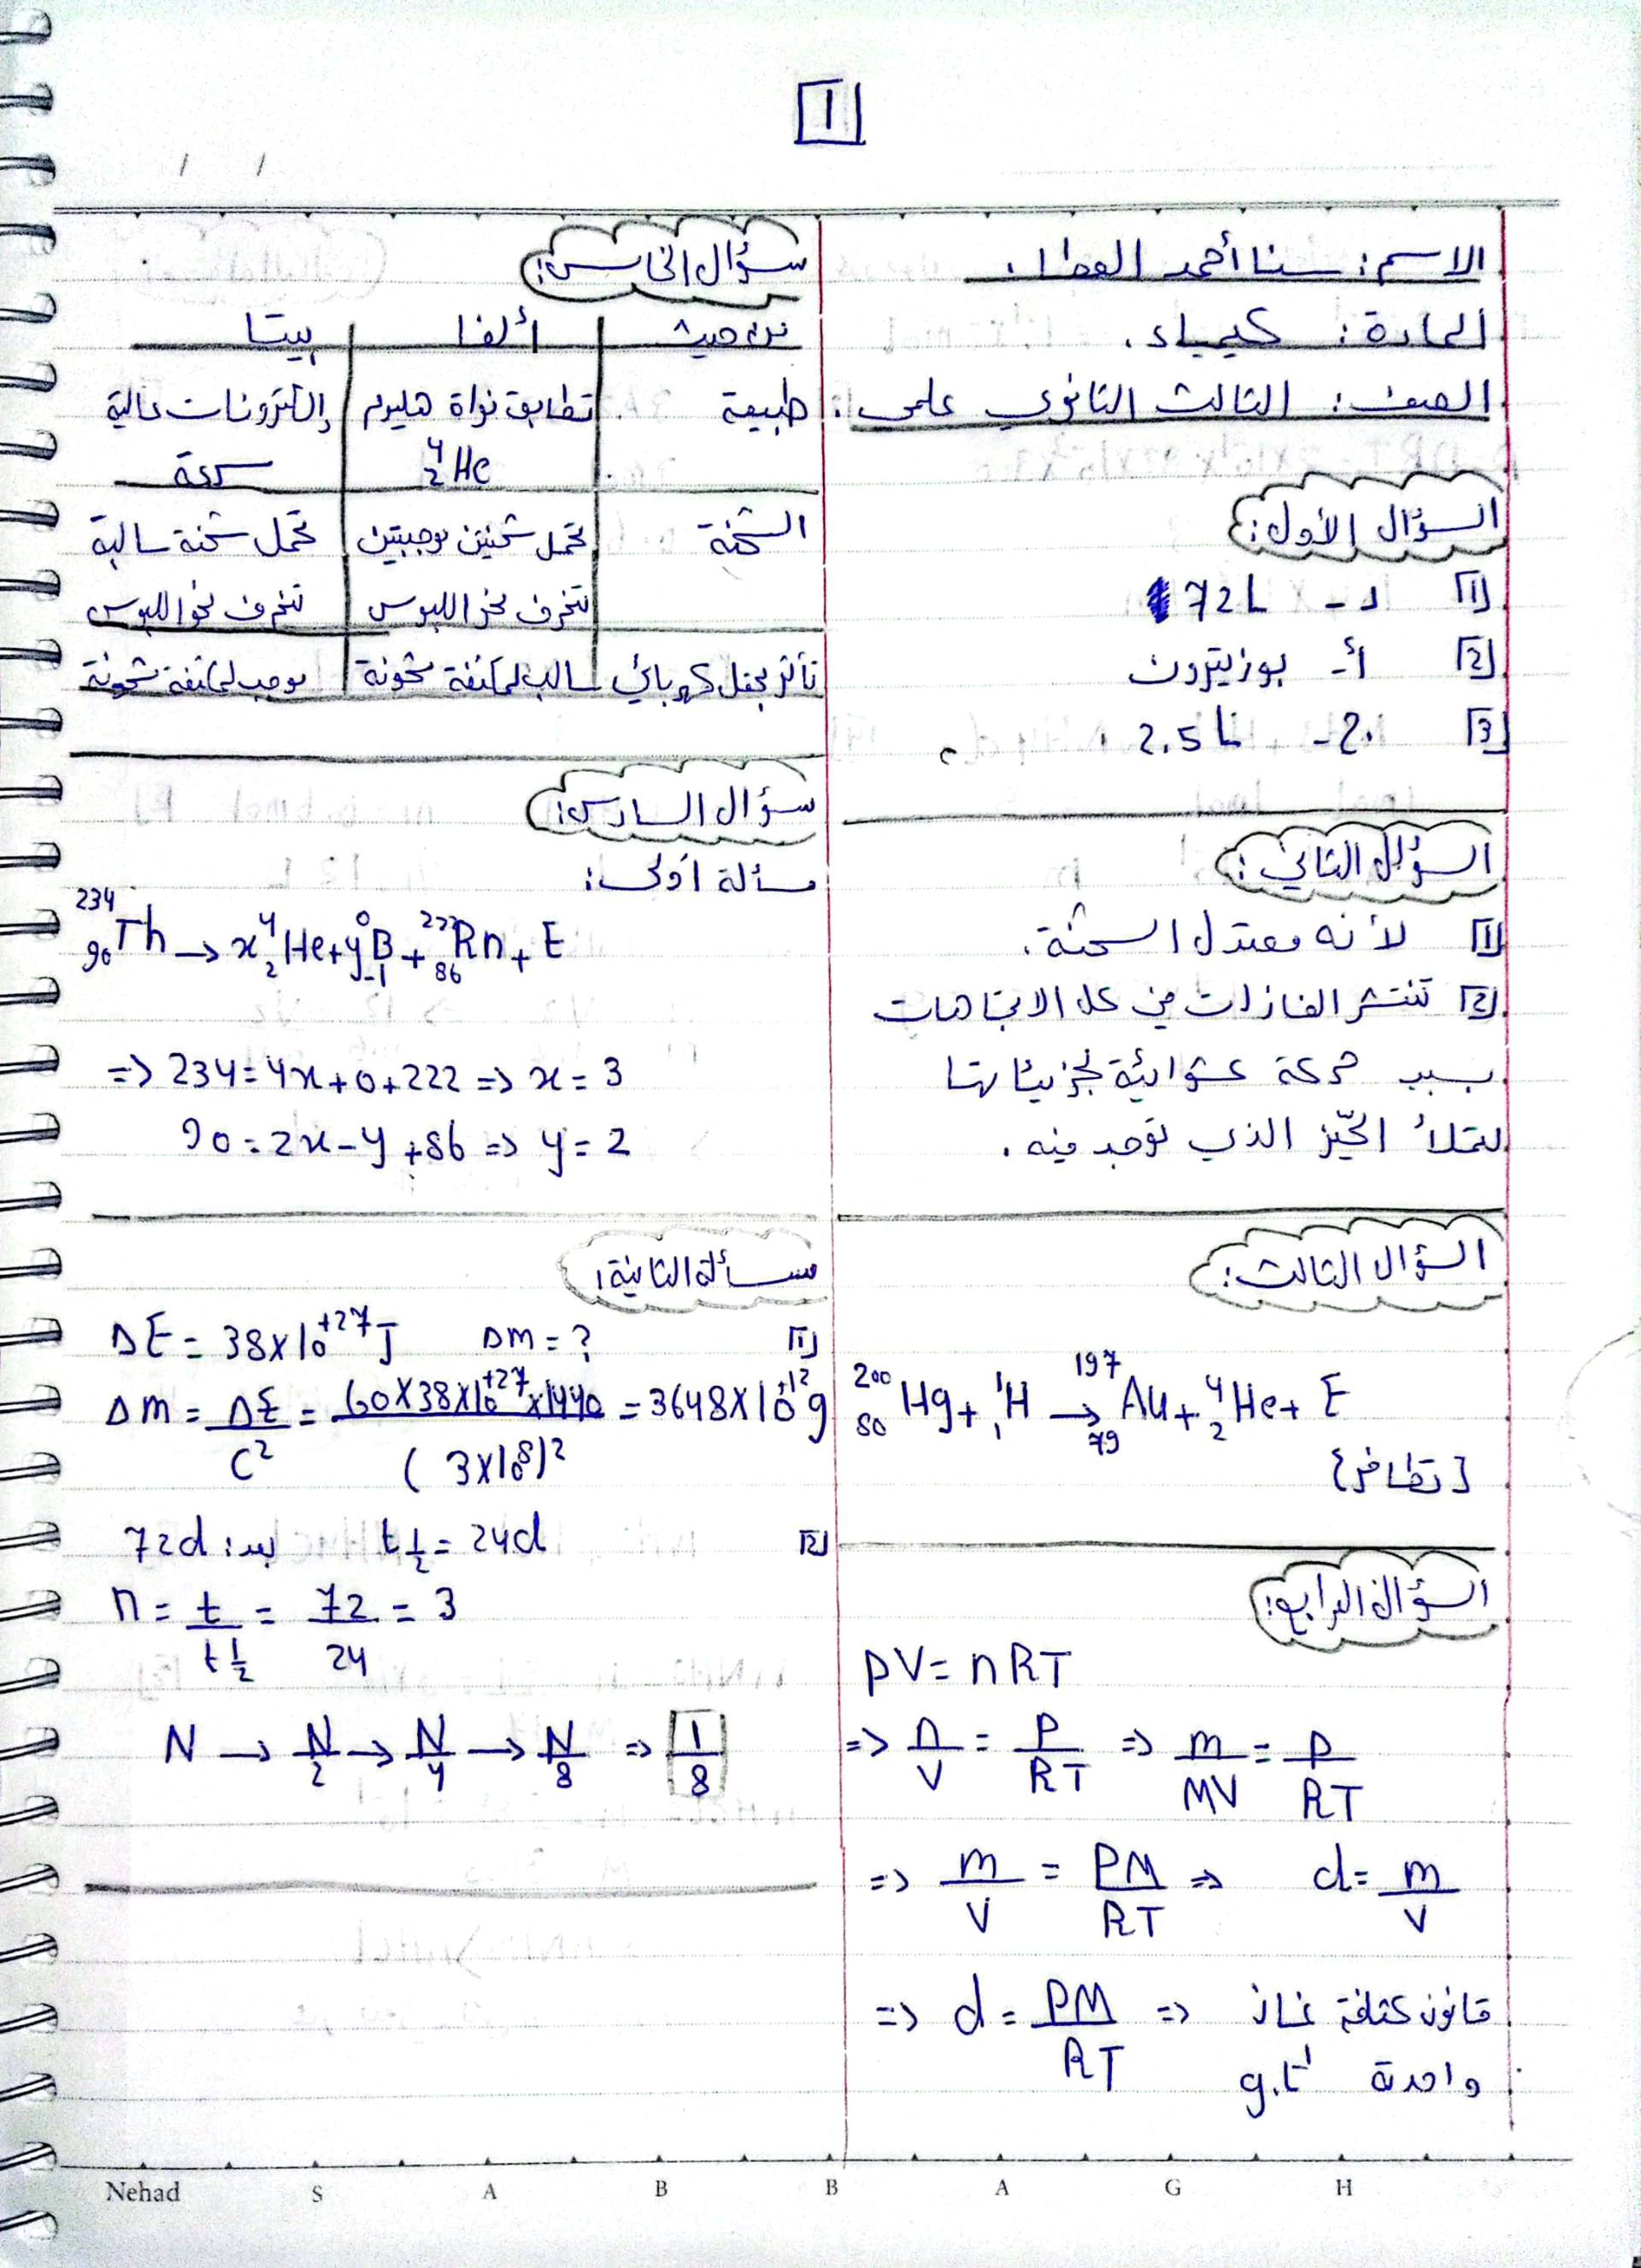 1
الاسم: سنا أحمد العطار.
المادة: كيمياء.
الصف: الثالث الثانوي علمي.
السؤال الأول:
[1] د - 72L
[2] أ- بوزيترون
[3] ج- 2.5L.
السؤال الثاني:
[1] لأنه معتدل الشحنة.
[2] تنتشر الغازات في كل الاتجاهات
بسبب حركة عشوائية لجزيئاتها
لتملأ الحيّز الذي توجد فيه.
السؤال الثالث:
²⁰⁰₈₀Hg + ¹₁H → ¹⁹⁷₇₉Au + ⁴₂He + E
{تطافر}
السؤال الرابع:
PV = nRT
=> n/V = P/RT => m/MV = P/RT
=> m/V = PM/RT => d = m/V
=> d = PM/RT => قانون كثافة غاز
واحدة g.L⁻¹
سؤال الخامس:
من حيث | ألفا | بيتا
طبيعة | تطابق نواة هليوم | إلكترونات عالية
⁴₂He | سرعة
الشحنة | تحمل شحنتين موجبتين | تحمل شحنة سالبة
تنحرف نحو اللبوس | تنحرف نحو اللبوس
تأثر بحقل كهربائي | سالب لمكثفة مشحونة | موجب لمكثفة مشحونة
سؤال السادس:
مسألة أولى:
²³⁴₉₀Th → x⁴₂He + y⁰₋₁B + ²²²₈₆Rn + E
=> 234 = 4x + 0 + 222 => x = 3
90 = 2x - y + 86 => y = 2
مسألة الثانية:
[1] ΔE = 38×10⁺²⁷J Δm = ?
Δm = ΔE/C² = 60×38×10⁺²⁷×1440/(3×10⁸)² = 3648×10⁺¹²g
[2] t½ = 24d بعد: 72d
n = t/t½ = 72/24 = 3
N → N/2 → N/4 → N/8 => 1/8
Nehad S A B B A G H